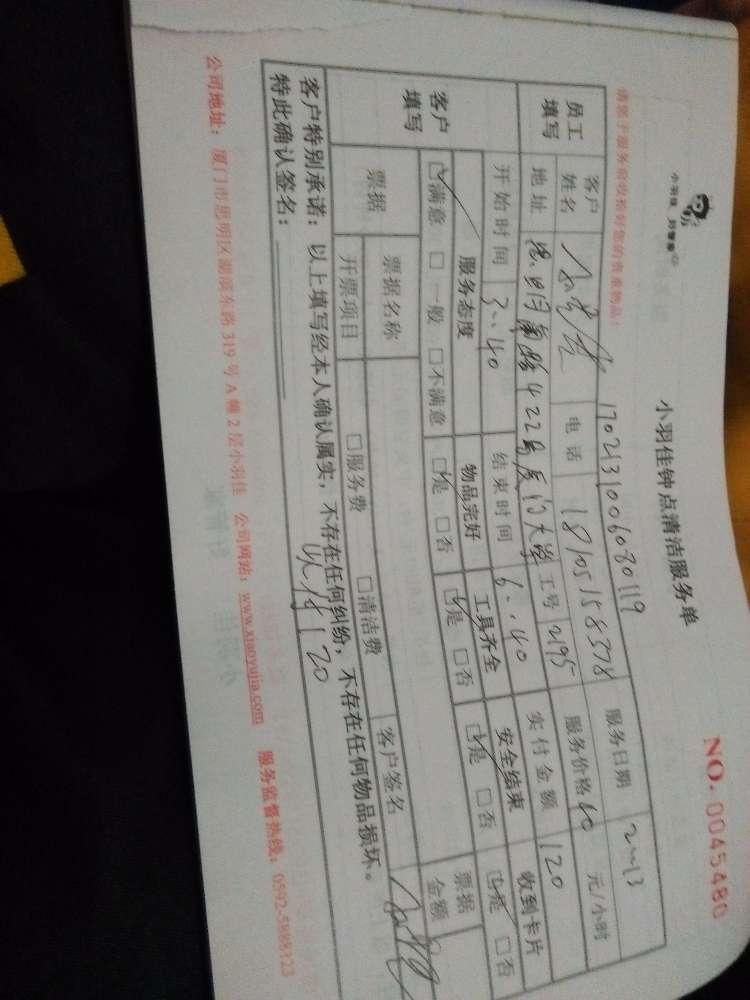 小羽佳钟点清洁服务单
NO. 0045480
小羽佳
请您于服务前收拾好您的贵重物品!
1702131006080119
服务日期 2-13
员工填写
客户姓名
电话 18105158378
服务价格 40 元/小时
地址 思明南路422号厦门大学
工号 2195
实付金额 120
客户填写
开始时间 3:40
结束时间 6:40
服务态度
物品完好
工具齐全
安全结束
收到卡片
☑满意 □一般 □不满意
☑是 □否
☑是 □否
☑是 □否
☑是 □否
票据
票据名称
客户签名
票据金额
开票项目
□服务费
□清洁费
客户特别承诺:以上填写经本人确认属实,不存在任何纠纷,不存在任何物品损坏。
特此确认签名:
120
公司地址:厦门市思明区湖滨东路319号A幢2层小羽佳 公司网站:www.xiaoyujia.com 服务监督热线:0592-5888123